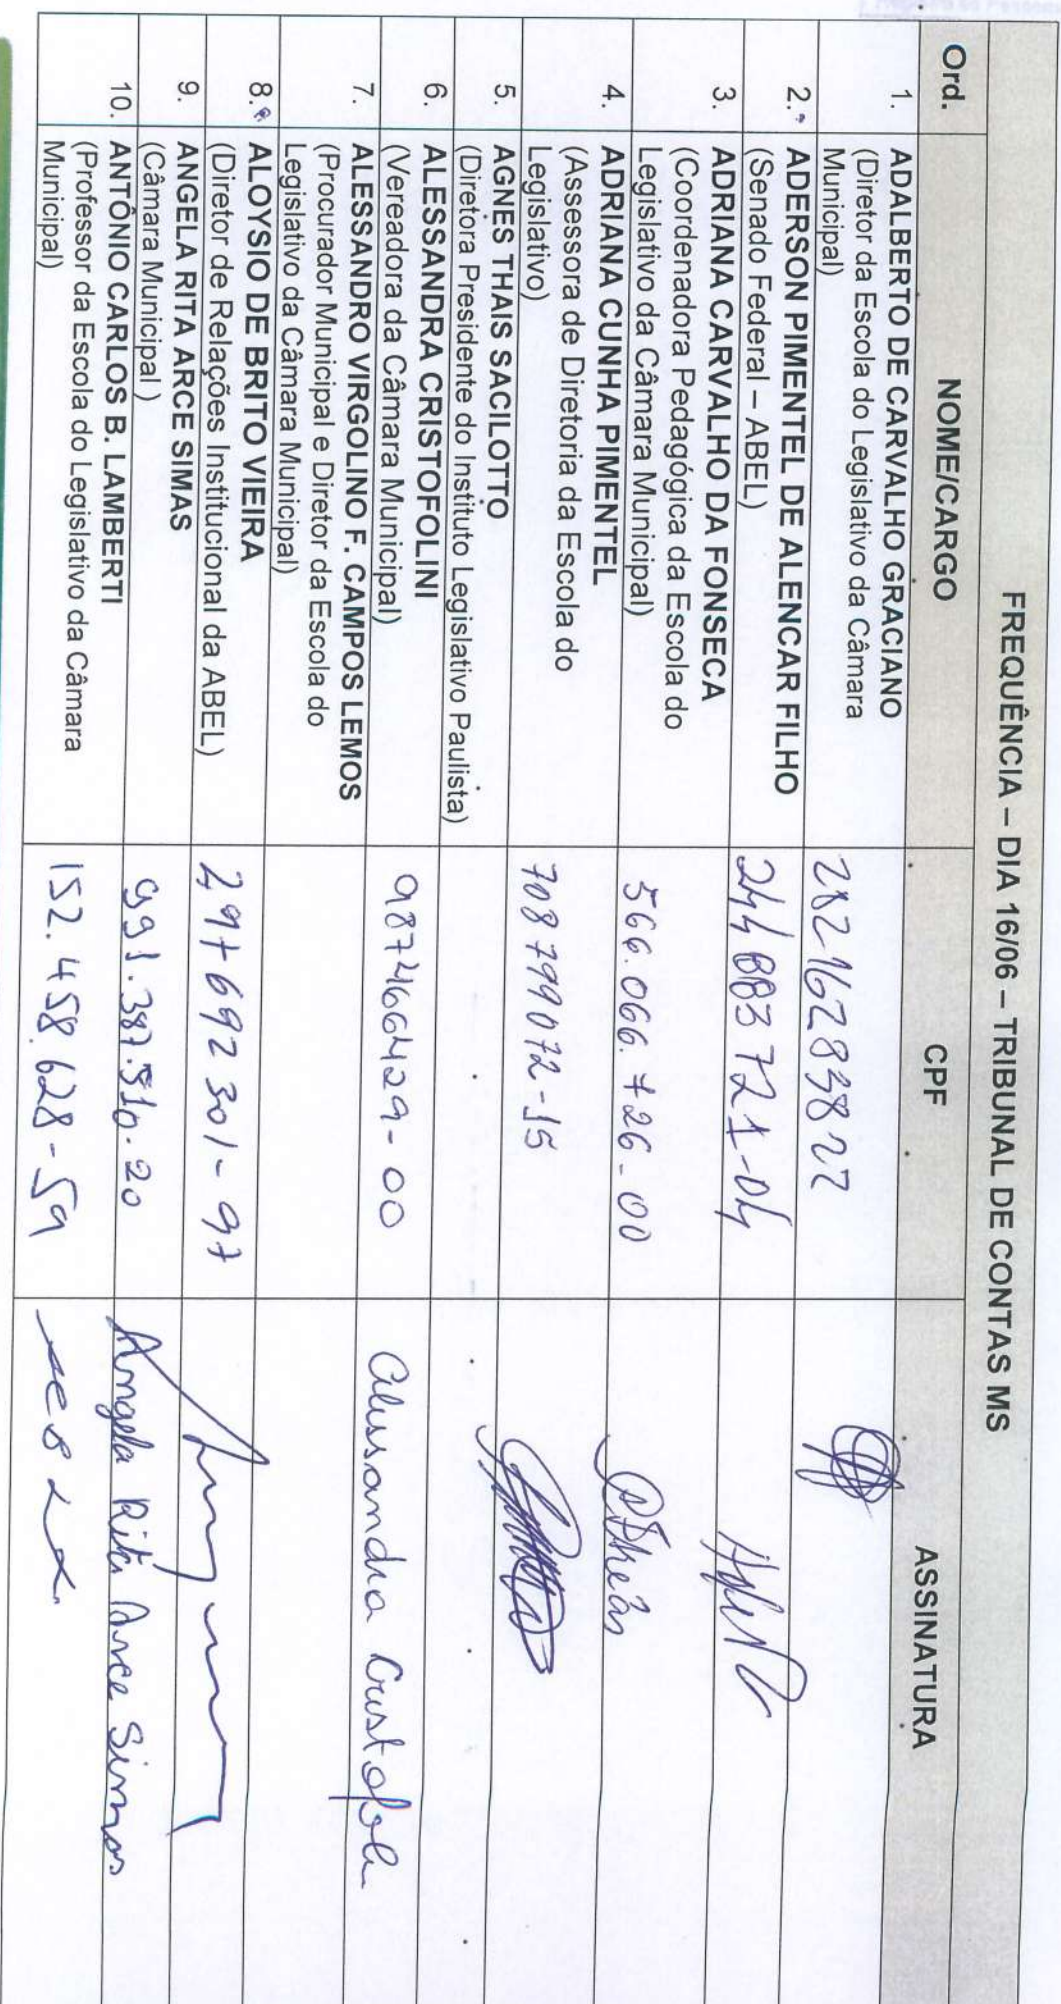 FREQUÊNCIA – DIA 16/06 – TRIBUNAL DE CONTAS MS
Ord. NOME/CARGO CPF ASSINATURA
1. ADALBERTO DE CARVALHO GRACIANO
(Diretor da Escola do Legislativo da Câmara
Municipal)
28216283822
2. ADERSON PIMENTEL DE ALENCAR FILHO
(Senado Federal – ABEL)
244883721-04
3. ADRIANA CARVALHO DA FONSECA
(Coordenadora Pedagógica da Escola do
Legislativo da Câmara Municipal)
566.066.726-00
4. ADRIANA CUNHA PIMENTEL
(Assessora de Diretoria da Escola do
Legislativo)
708799072-15
5. AGNES THAIS SACILOTTO
(Diretora Presidente do Instituto Legislativo Paulista)
6. ALESSANDRA CRISTOFOLINI
(Vereadora da Câmara Municipal)
98746 6429-00 Alessandra Cristofoli
7. ALESSANDRO VIRGOLINO F. CAMPOS LEMOS
(Procurador Municipal e Diretor da Escola do
Legislativo da Câmara Municipal)
8. ALOYSIO DE BRITO VIEIRA
(Diretor de Relações Institucional da ABEL)
297692301-97
9. ANGELA RITA ARCE SIMAS
(Câmara Municipal )
991.387.510.20 Angela Rita Arce Simas
10. ANTÔNIO CARLOS B. LAMBERTI
(Professor da Escola do Legislativo da Câmara
Municipal)
152.458.628-59